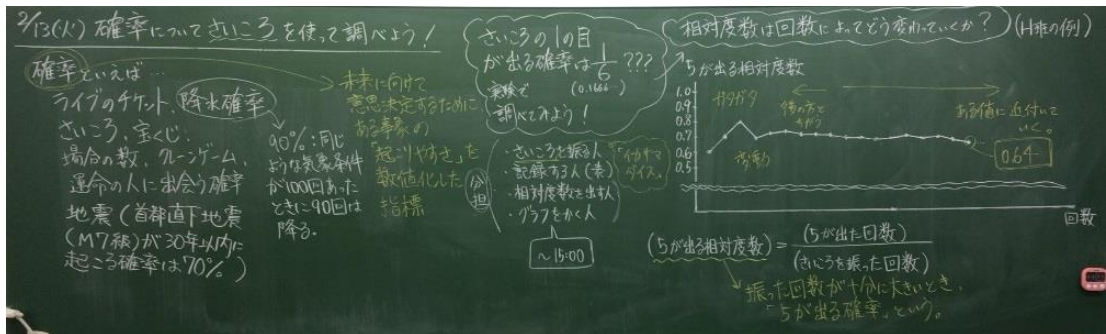 2/13(火) 確率についてさいころを使って調べよう！
確率といえば…
ライブのチケット、降水確率
さいころ、宝くじ
場合の数、クレーンゲーム、
運命の人に出会う確率
地震（首都直下地震
（M7級）が30年以内に
起こる確率は70%）
90%：同じ
ような気象条件
が100回あった
ときに90回は
降る。
未来に向けて
意思決定するために
ある事象の
「起こりやすさ」を
数値化した
指標
さいころの1の目
が出る確率は1/6???
実験で (0.1666…)
調べてみよう！
分担
・さいころを振る人
・記録する人（表）
・相対度数を出す人
・グラフをかく人
「イカサマ
ダイス。」
～15:00
相対度数は回数によってどう変わっていくか？ (H班の例)
5が出る相対度数
1.0
0.9
0.8
0.7
0.6
0.5
ガタガタ
変動
ある値に近付いて
いく。
0.64
回数
(5が出る相対度数) = (5が出た回数)/(さいころを振った回数)
振った回数が十分に大きいとき、
「5が出る確率」という。